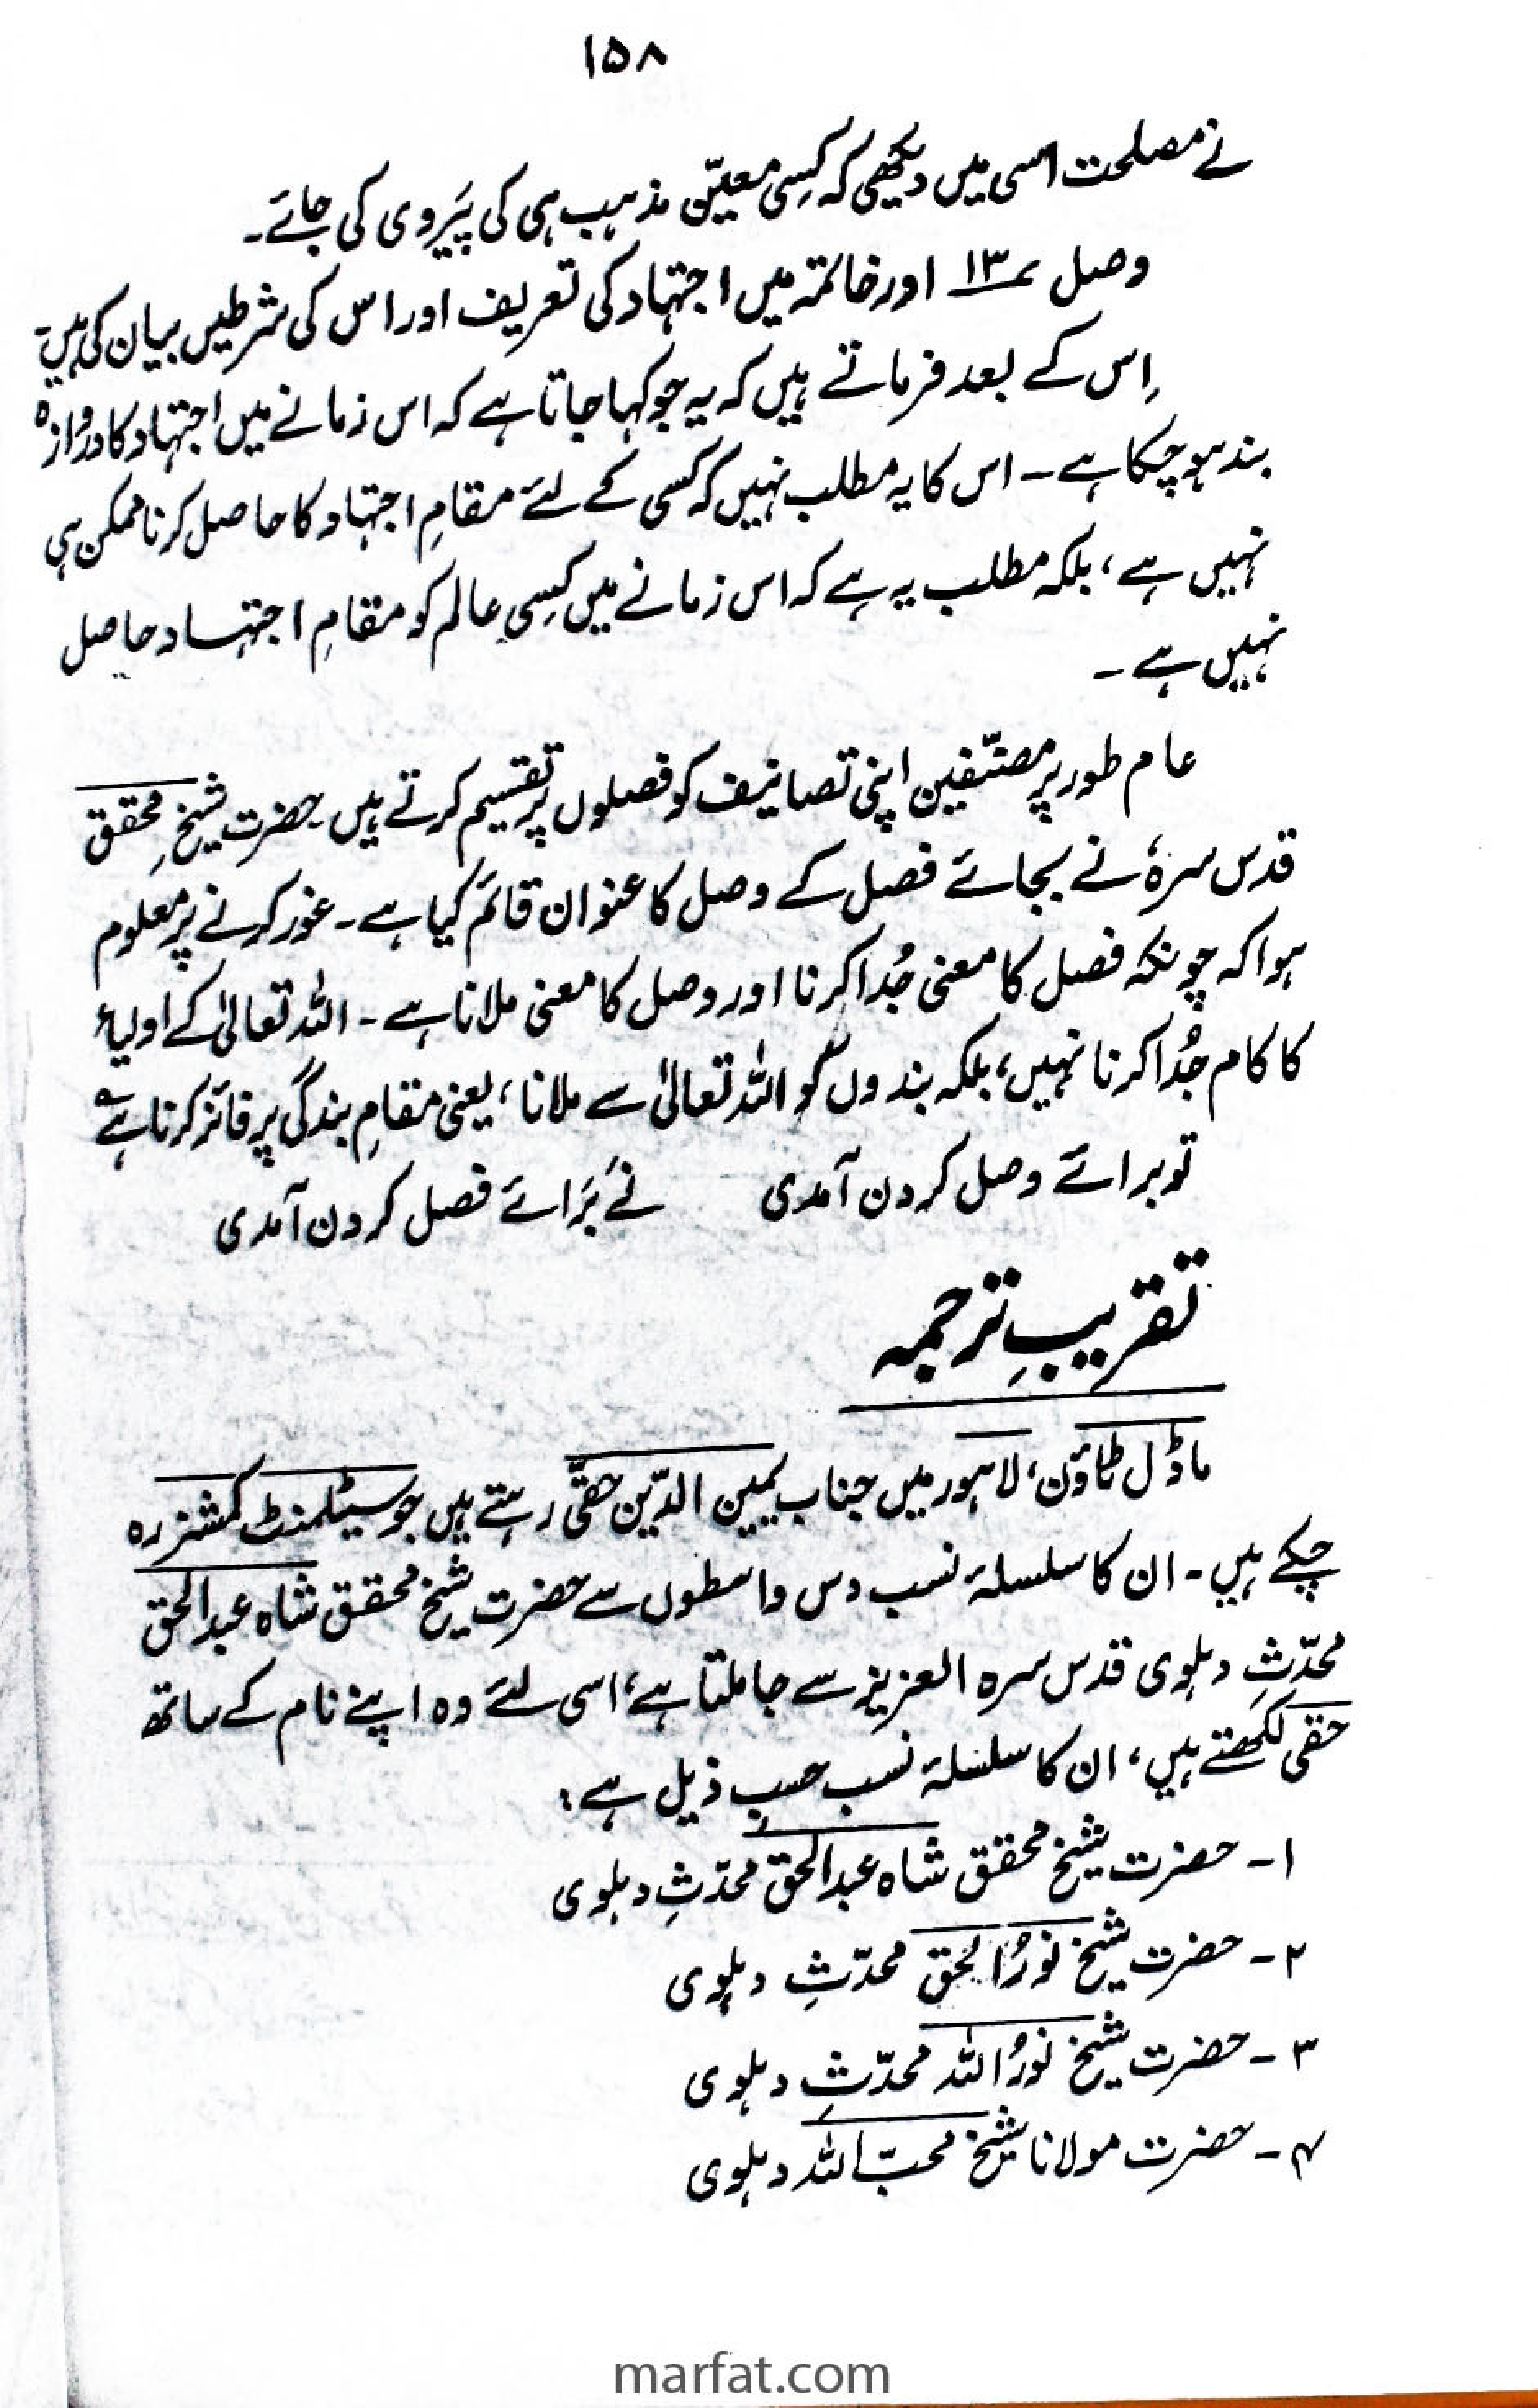 ۱۵۸
نے مصلحت اسی میں دیکھی کہ کِسی معیّن مذہب ہی کی پَیروی کی جائے۔
وصل ۱۳؎ اور خاتمہ میں اجتہاد کی تعریف اور اس کی شرطیں بیان کی ہیں۔
اِس کے بعد فرماتے ہیں کہ یہ جو کہا جاتا ہے کہ اس زمانے میں اجتہاد کا دروازہ
بند ہو چکا ہے۔ اس کا یہ مطلب نہیں کہ کسی کے لئے مقامِ اجتہاد کا حاصل کرنا ممکن ہی
نہیں ہے، بلکہ مطلب یہ ہے کہ اس زمانے میں کِسی عالم کو مقامِ اجتہاد حاصل
نہیں ہے۔
عام طور پر مصنّفین اپنی تصانیف کو فصلوں پر تقسیم کرتے ہیں۔ حضرت شیخِ محقق
قدس سرہٗ نے بجائے فصل کے وصل کا عنوان قائم کیا ہے۔ غور کرنے پر معلوم
ہوا کہ چونکہ فصل کا معنی جُدا کرنا اور وصل کا معنی ملانا ہے۔ اللہ تعالیٰ کے اولیاء
کا کام جُدا کرنا نہیں، بلکہ بندوں کو اللہ تعالیٰ سے ملانا، یعنی مقامِ بندگی پر فائز کرنا ہے
تو برائے وصل کردن آمدی نے بَرائے فصل کردن آمدی
تقریبِ ترجمہ
ماڈل ٹاؤن، لاہور میں جناب یمین الدّین حقّی رہتے ہیں جو سیٹلمنٹ کمشنر رہ
چکے ہیں۔ ان کا سلسلۂ نسب دس واسطوں سے حضرت شیخ محقق شاہ عبدالحق
محدّثِ دہلوی قدس سرہ العزیز سے جا ملتا ہے، اسی لئے وہ اپنے نام کے ساتھ
حقی لکھتے ہیں، ان کا سلسلۂ نسب حسبِ ذیل ہے:
۱۔ حضرت شیخ محقق شاہ عبدالحق محدّثِ دہلوی
۲۔ حضرت شیخ نورُ الحق محدّثِ دہلوی
۳۔ حضرت شیخ نورُ اللہ محدّثِ دہلوی
۴۔ حضرت مولانا شیخ محبّ اللہ دہلوی
marfat.com